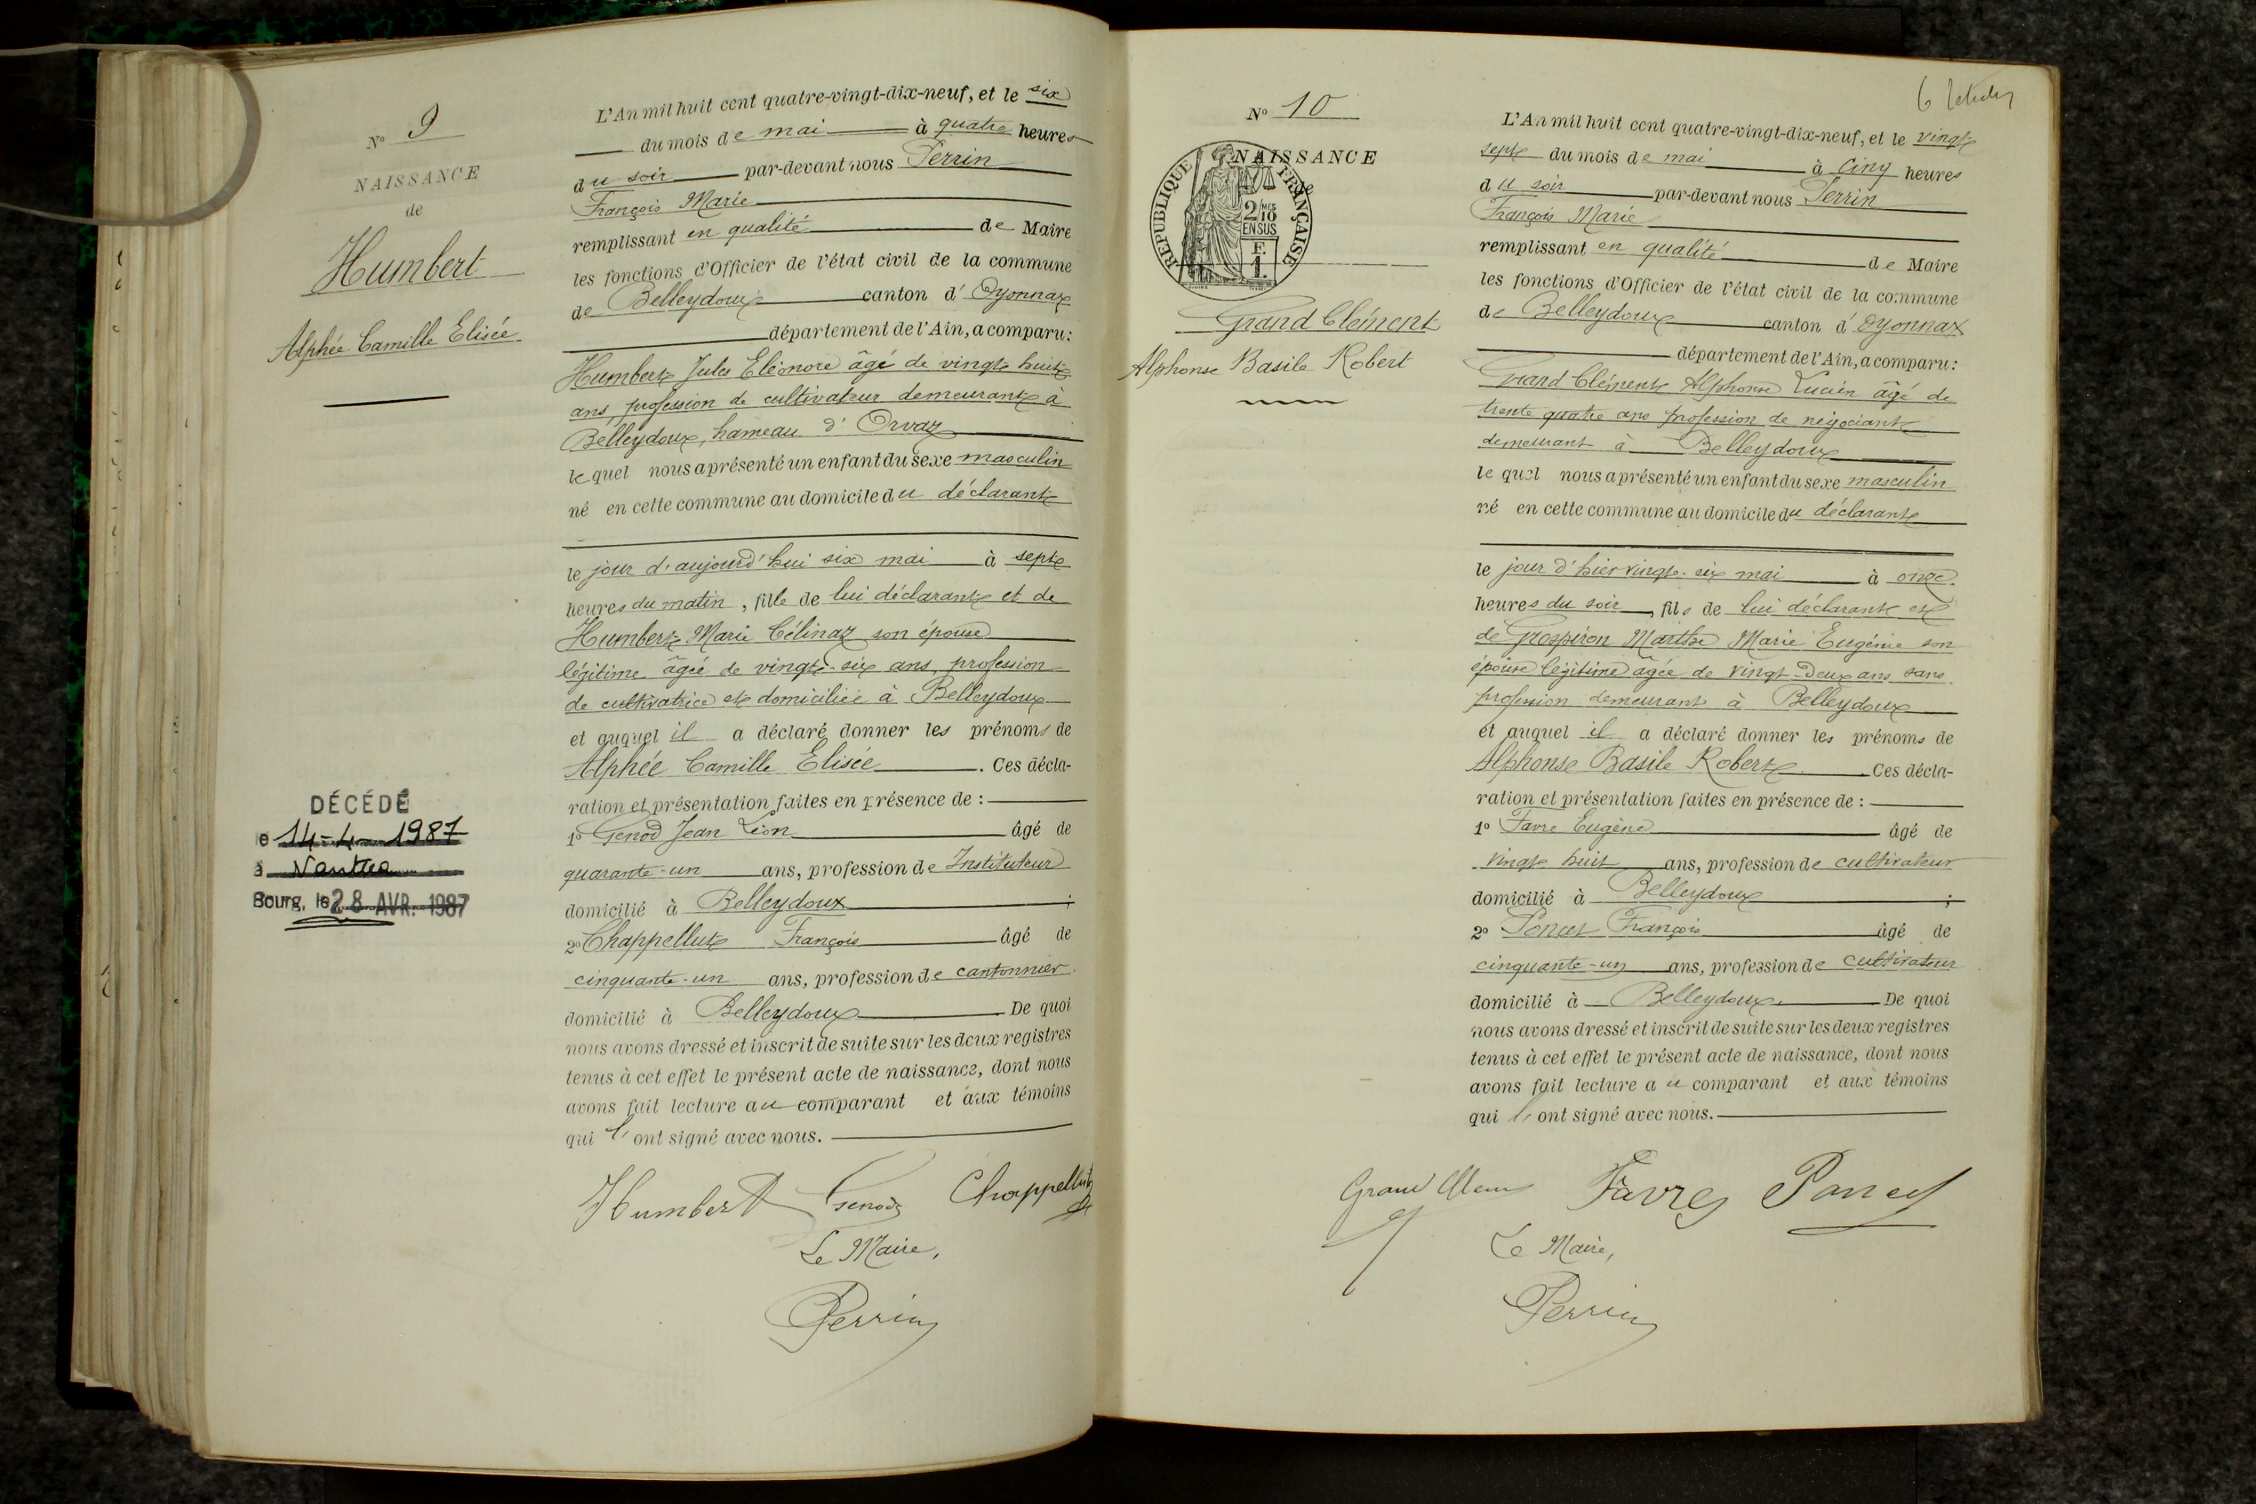 N° 9
NAISSANCE
de
Humbert
Alphée Camille Elisée
DÉCÉDÉ
le 14-4-1987
à Nantua
Bourg, le 28 AVR. 1987
L'An mil huit cent quatre-vingt-dix-neuf, et le six
du mois de mai à quatre heures
du soir par-devant nous Perrin
François Marie
remplissant en qualité de Maire
les fonctions d'Officier de l'état civil de la commune
de Belleydoux canton d' Oyonnax
département de l'Ain, a comparu:
Humbert Jules Eléonore âgé de vingt huit
ans, profession de cultivateur demeurant à
Belleydoux, hameau d' Orvaz
lequel nous a présenté un enfant du sexe masculin
né en cette commune au domicile du déclarant
le jour d'aujourd'hui six mai à sept
heures du matin, fils de lui déclarant et de
Humbert Marie Célinaz son épouse
légitime âgée de vingt-six ans, profession
de cultivatrice et domiciliée à Belleydoux
et auquel il a déclaré donner les prénoms de
Alphée Camille Elisée. Ces décla-
ration et présentation faites en présence de :
1° Genod Jean Léon âgé de
quarante-un ans, profession de Instituteur
domicilié à Belleydoux ;
2° Chappellut François âgé de
cinquante-un ans, profession de cantonnier
domicilié à Belleydoux De quoi
nous avons dressé et inscrit de suite sur les deux registres
tenus à cet effet le présent acte de naissance, dont nous
avons fait lecture au comparant et aux témoins
qui l'ont signé avec nous.
Humbert Genod Chappellut
Le Maire,
Perrin
N° 10
NAISSANCE
RÉPUBLIQUE FRANÇAISE
2/10 MES
EN SUS
F.
1.
Grand Clément
Alphonse Basile Robert
L'An mil huit cent quatre-vingt-dix-neuf, et le vingt
sept du mois de mai à cinq heures
du soir par-devant nous Perrin
François Marie
remplissant en qualité de Maire
les fonctions d'Officier de l'état civil de la commune
de Belleydoux canton d' Oyonnax
département de l'Ain, a comparu:
Grand Clément Alphonse Lucien âgé de
trente quatre ans profession de négociant
demeurant à Belleydoux
lequel nous a présenté un enfant du sexe masculin
né en cette commune au domicile du déclarant
le jour d'hier vingt-six mai à onze
heures du soir, fils de lui déclarant et
de Grospiron Marthe Marie Eugénie son
épouse légitime âgée de vingt-deux ans sans
profession demeurant à Belleydoux
et auquel il a déclaré donner les prénoms de
Alphonse Basile Robert. Ces décla-
ration et présentation faites en présence de :
1° Favre Eugène âgé de
vingt huit ans, profession de cultivateur
domicilié à Belleydoux ;
2° Poncet François âgé de
cinquante-un ans, profession de cultivateur
domicilié à Belleydoux. De quoi
nous avons dressé et inscrit de suite sur les deux registres
tenus à cet effet le présent acte de naissance, dont nous
avons fait lecture au comparant et aux témoins
qui l'ont signé avec nous.
Grand Clément Favre Poncet
Le Maire,
Perrin